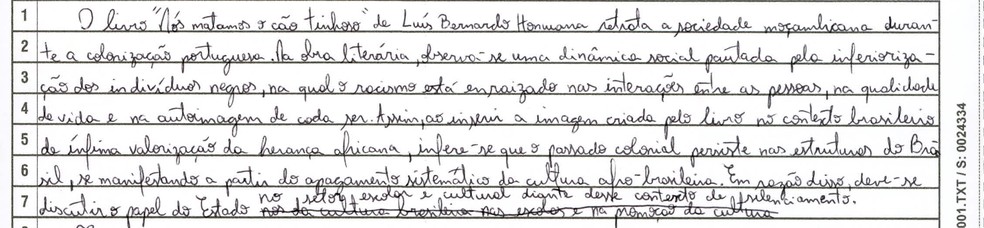 1 O livro "Nós matamos o cão tinhoso" de Luís Bernardo Honwana retrata a sociedade moçambicana duran-
2 te a colonização portuguesa. Na obra literária, observa-se uma dinâmica social pautada pela inferioriza-
3 ção dos indivíduos negros, na qual o racismo está enraizado nas interações entre as pessoas, na qualidade
4 de vida e na autoimagem de cada ser. Assim, ao inserir a imagem criada pelo livro no contexto brasileiro
5 de ínfima valorização da herança africana, infere-se que o passado colonial persiste nas estruturas do Bra
6 sil, se manifestando a partir do apagamento sistemático da cultura afro-brasileira. Em razão disso, deve-se
7 discutir o papel do Estado no setor escolar e cultural diante desse contexto de silenciamento.
nos da cultura brasileira nas escolas e na promoção da cultura
001.TXT / S: 0024334